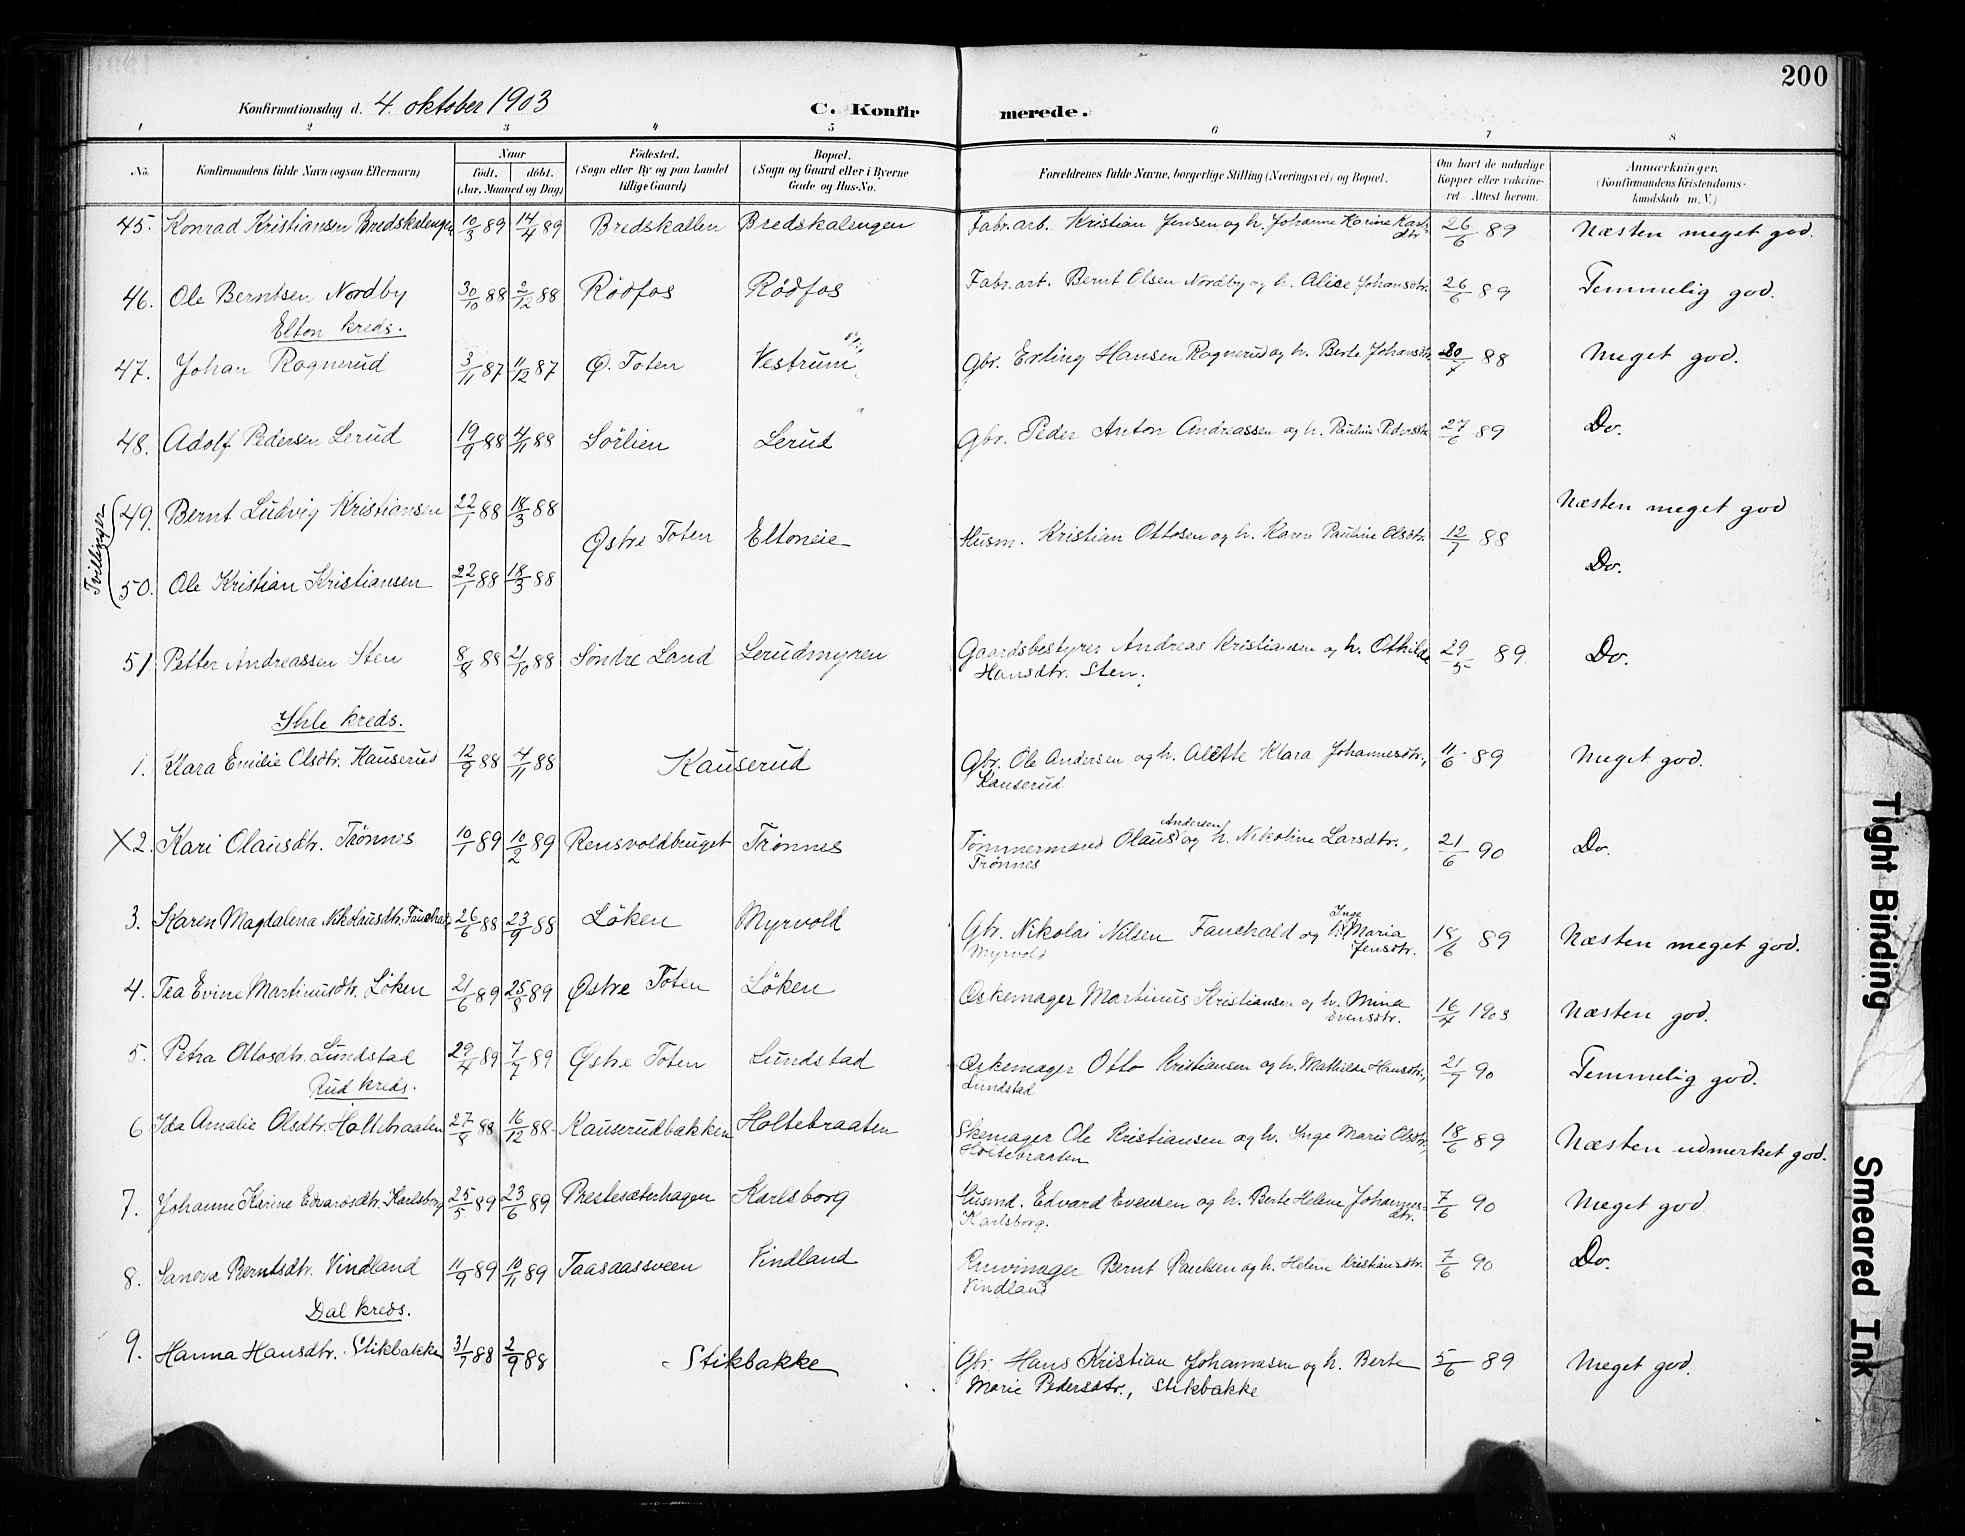 200
Konfirmationsdag d. 4. oktober 1903 C. Konfirmerede.
1 2 3 4 5 6 7 8
No. Konfirmandens fulde Navn (ogsaa Efternavn) Naar født. døbt. (Aar, Maaned og Dag) Fødested. (Sogn eller By og paa Landet tillige Gaard) Bopæl. (Sogn og Gaard eller i Byerne Gade og Hus-No. Forældrenes fulde Navne, borgerlige Stilling (Næringsvei) og Bopæl. Om havt de naturlige Kopper eller vakcineret. Attest herom. Anmærkninger. (Konfirmandens Kristendomskundskab m. V.)
45. Konrad Kristiansen Bredskalengen 10/3 89 14/4 89 Bredskallen Bredskalengen Fabr.arb. Kristian Jensen og h. Johanne Karine Karlsdtr. 26/6 89 Næsten meget god.
46. Ole Berntsen Nordby 30/10 88 2/12 88 Rødfos Rødfos Fabr.arb. Bernt Olsen Nordby og h. Alise Johansdtr. 26/6 89 Temmelig god.
Elton kreds.
47. Johan Rognerud 3/11 87 11/12 87 Ø. Toten Vestrum Gbr. Erling Hansen Rognerud og h. Berte Johansdtr. 30/7 88 Meget god.
48. Adolf Pedersen Lerud 19/9 88 4/11 88 Sørlien Lerud Gbr. Peder Anton Andreassen og h. Pauline Pedersdtr. 27/6 89 Do.
Tvillinger
49. Bernt Ludvig Kristiansen 22/1 88 18/3 88 Næsten meget god
Østre Toten Eltoneie Husm. Kristian Ottosen og h. Karen Pauline Olsdtr. 12/7 88
50. Ole Kristian Kristiansen 22/1 88 18/3 88 Do.
51 Petter Andreassen Sten 8/8 88 21/10 88 Søndre Land Lerudmyren Gaardsbestyrer Andreas Kristiansen og h. Othilde Hansdtr. Sten. 29/5 89 Do.
Ihle kreds.
1. Klara Emilie Olsdtr. Kauserud 12/9 88 4/11 88 Kauserud Gbr. Ole Andersen og h. Alette Klara Johannesdtr., Kauserud 11/6 89 Meget god.
X2. Kari Olausdtr. Trønnes 10/1 89 10/2 89 Rensvoldbruget Trønnes Tømmermand Olaus Andersen og h. Nikoline Larsdtr., Trønnes 21/6 90 Do.
3. Karen Magdalena Nikolausdtr. Fauchald 26/6 88 23/9 88 Løken Myrvold Gbr. Nikolai Nilsen Fauchald og h. Inge Maria Jensdtr. Myrvold 18/6 89 Næsten meget god.
4. Tea Evine Martinusdtr. Løken 21/6 89 25/8 89 Østre Toten Løken Øskemager Martinus Kristiansen og h. Mina Evensdtr. 16/4 1903 Næsten god.
5. Petra Ottosdtr. Lundstad 29/4 89 7/7 89 Østre Toten Lundstad Øskemager Otto Kristiansen og h. Mathilde Hansdtr., Lundstad 21/7 90 Temmelig god.
Rud kreds.
6 Ida Amalie Olsdtr. Holtebraaten 27/8 88 16/12 88 Kauserudbakken Holtebraaten Skomager Ole Kristiansen og h. Inge Marie Olsdtr., Holtebraaten 18/6 89 Næsten udmerket god.
7. Johanne Karine Edvardsdtr. Karlsborg 25/5 89 23/6 89 Prestesæterhagen Karlsborg Husmd. Edvard Evensen og h. Berte Helene Johannesdtr. Karlsborg. 7/6 90 Meget god.
8. Sanova Berntsdtr. Vindland 11/9 89 10/11 89 Taasaassveen Vindland Bernt Paulsen og h. Helene Kristiansdtr. Vindland 7/6 90 Do.
Dal kreds.
9. Hanna Hansdtr. Stikbakke 31/7 88 2/9 88 Stikbakke Gbr. Hans Kristian Johannesen og h. Berte Marie Pedersdtr., Stikbakke 5/6 89 Meget god.
Tight Binding
Smeared Ink